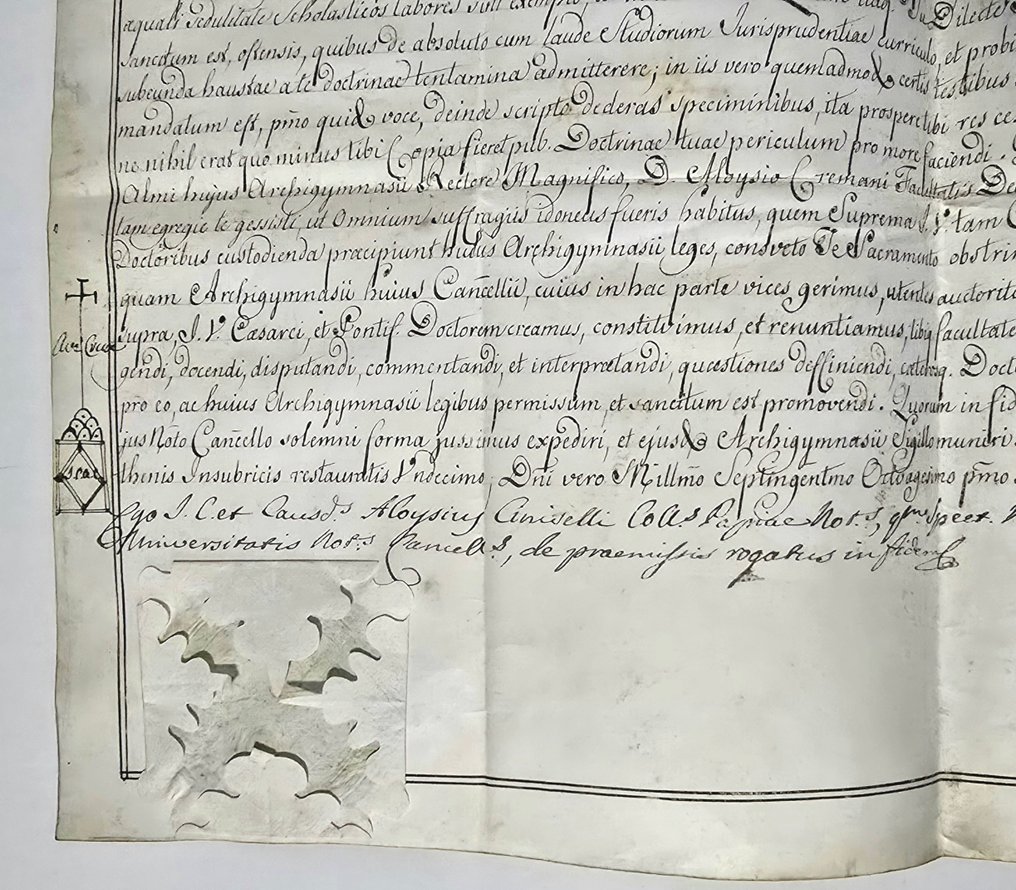 æquali sedulitate Scholasticos labores
Sancitum est, ostensis, quibus de absoluto cum laude Studiorum Jurisprudentiae curriculo, et probi
subeunda haustae a te doctrinae tentamina admitterere; in iis vero quemadmođ certis testibus
mandatum est, pm̃o quiđ voce, deinde scripto dederas speciminibus, ita prospere tibi res ce
ne nihil erat quo minus tibi Copia fieret pub. Doctrinae tuae periculum pro more faciendi.
Almi hujus Archigymnasii Rectore Magnifico, D. Aloysio Cremani Facultatis De
tam egregie te gessisti, ut Omnium suffragiis idoneus fueris habitus, quem Suprema J. V. tam
Doctoribus custodienda præcipiunt hujus Archigymnasii leges, consveto Te Sacramento obstrin
quam Archigymnasii huius Cancellii, cuius in hac parte vices gerimus, utentes auctorita
supra, J. V. Cæsarei, et Pontif. Doctorem creamus, constitvimus, et renuntiamus, tibiq facultate
gendi, docendi, disputandi, commentandi, et interprætandi, quæstiones deffiniendi, cæterosq. Docto
pro eo, ac huius Archigymnasii legibus permissum, et sancitum est promovendi. Quorum in fid
ius Noto Cancello solemni forma jussimus expediri, et ejusđ Archigymnasii Sigillo muneri
thenis Insubricis restauratis Vndecimo; Dni vero Millmo Septingentmo Octoagesimo pmo
Ego J. C. et Causds Aloysius Ciniselli Colls Papiae Nots, qms Spect.
Universitatis Nots Cancells, de praemissis rogatus in fidem